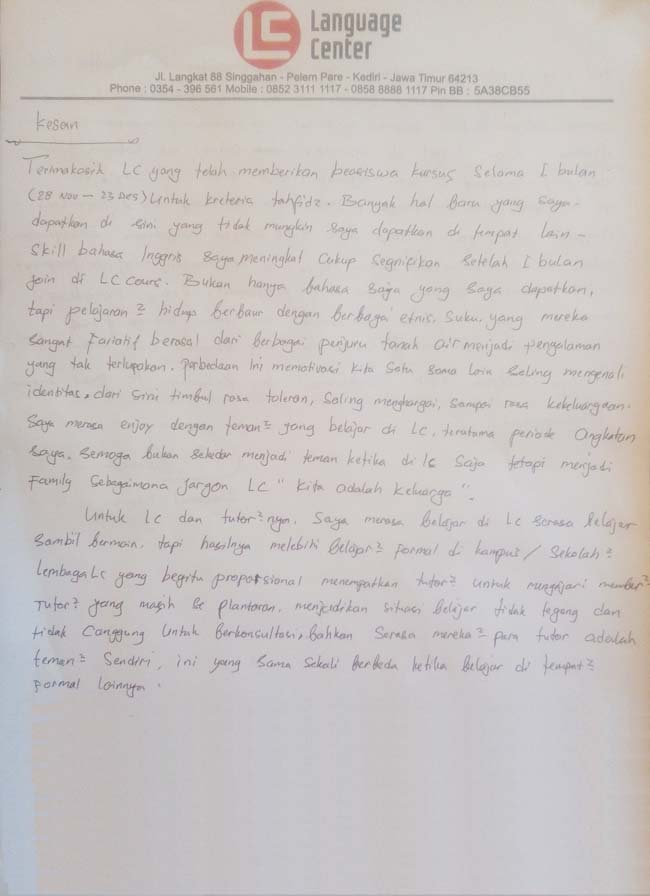 LC
Language
Center
Jl. Langkat 88 Singgahan - Pelem Pare - Kediri - Jawa Timur 64213
Phone : 0354 - 396 561 Mobile : 0852 3111 1117 - 0858 8888 1117 Pin BB : 5A38CB55
Kesan
Terimakasih LC yang telah memberikan beasiswa kursus selama I bulan
(28 Nov - 23 Des) Untuk kreteria tahfidz. Banyak hal baru yang saya
dapatkan di sini yang tidak mungkin saya dapatkan di tempat lain -
Skill bahasa Inggris saya meningkat cukup segnifikan setelah I bulan
join di LC cours. Bukan hanya bahasa saja yang saya dapatkan,
tapi pelajaran² hidup berbaur dengan berbagai etnis, suku, yang mereka
sangat fariatif berasal dari berbagai penjuru tanah air menjadi pengalaman
yang tak terlupakan. perbedaan ini memotivasi kita satu sama lain saling mengenali
identitas, dari sini timbul rasa toleran, saling menghargai, sampai rasa kekeluargaan.
Saya merasa enjoy dengan teman² yang belajar di LC, terutama periode angkatan
saya. Semoga bukan sekedar menjadi teman ketika di lc saja tetapi menjadi
Family sebagaimana jargon LC " Kita adalah keluarga ".
Untuk LC dan tutor²nya, saya merasa belajar di LC serasa belajar
sambil bermain, tapi hasilnya melebihi belajar² formal di kampus / sekolah²
lembaga LC yang begitu proporsional menempatkan tutor² untuk mengajari member²
Tutor² yang masih se plantaran, menjadikan situasi belajar tidak tegang dan
tidak canggung untuk berkonsultasi, bahkan serasa mereka² para tutor adalah
teman² sendiri, ini yang sama sekali berbeda ketika belajar di tempat²
formal lainnya.